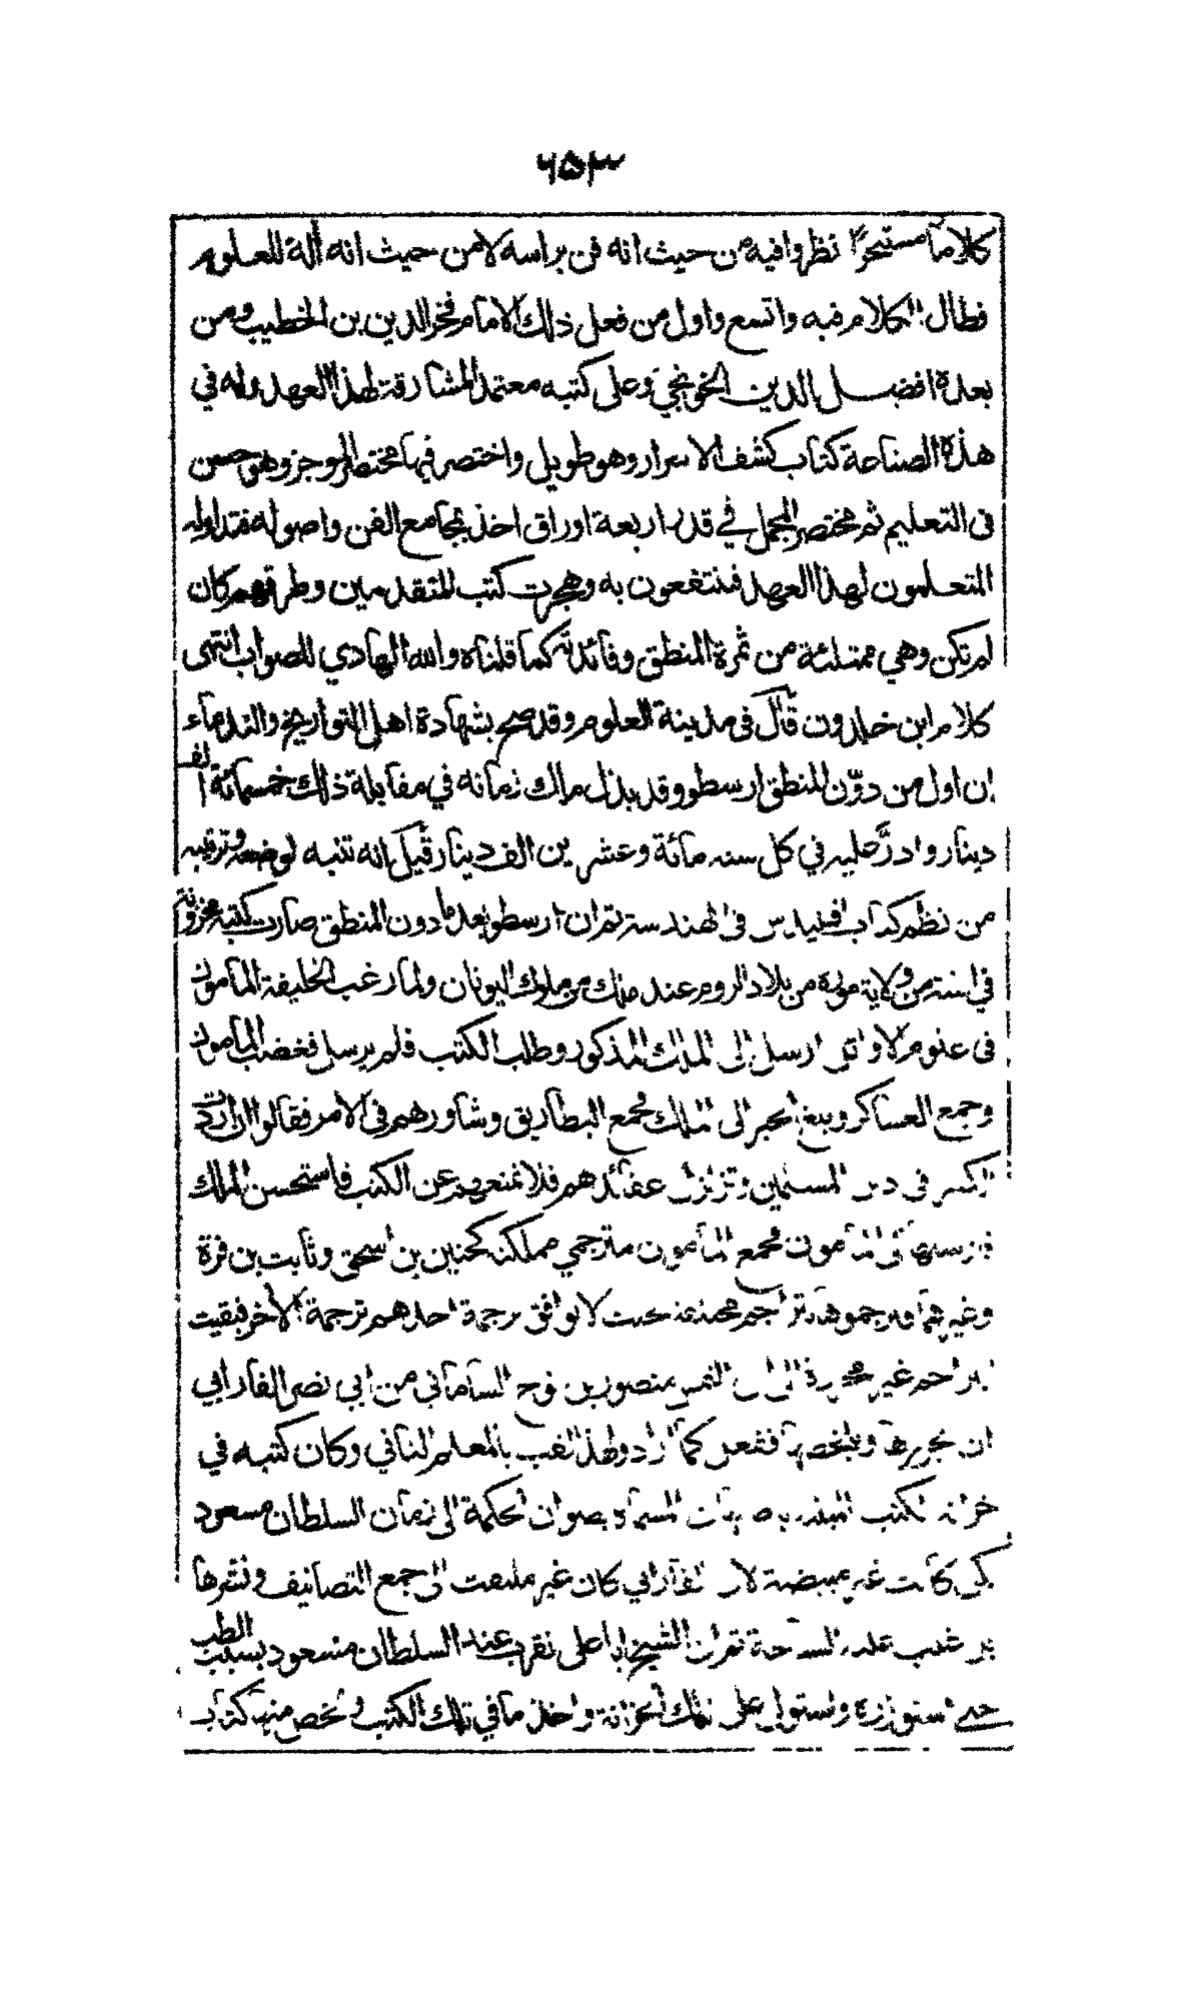 ٦٥٣
كلاما مستبحرًا نظروا فيه من حيث انه فن براسه لا من حيث انه ألة للعلوم
فطال الكلام فيه واتسع واول من فعل ذلك الامام فخر الدين بن الخطيب ومن
بعده افضل الدين الخونجي وعلى كتبه معتمد المشارقة لهذا العهد وله في
هذه الصناعة كتاب كشف الاسرار وهو طويل واختصر فيها مختصر الموجز وهو حسن
فى التعليم ثم مختصر الجمل في قدر اربعة اوراق اخذ بمجامع الفن واصوله فتداوله
المتعلمون لهذا العهد فينتفعون به وهجرت كتب المتقدمين وطرقهم كان
لم تكن وهي ممتلئة من ثمرة المنطق وفائدته كما قلناه والله الهادي للصواب انتهى
كلام ابن خلدون قال فى مدينة العلوم وقد صح بشهادة اهل التواريخ والندماء
ان اول من دوّن المنطق ارسطو وقد بذل ملك زمانه في مقابلة ذلك خمسمائة الف
دينار وادرَّ عليه في كل سنه مائة وعشرين الف دينار قيل انه تنبه لوضعه وترتيبه
من نظم كتاب اقليدس فى الهندسة ثم ان ارسطو بعد ما دون المنطق صارت كتبه مخزونة
في ابنته من ولاية موره من بلاد الروم عند ملك من ملوك اليونان ولما رغب الخليفة المامون
فى علوم الاوائل ارسل الى الملك المذكور وطلب الكتب فلم يرسل فغضب المامون
وجمع العساكر وبلغ الخبر الى الملك فجمع البطاريق وشاورهم فى الامر فقالوا ان اردت
الكسر فى دين المسلمين وتزلزل عقائدهم فلا تمنعهم عن الكتب فاستحسن الملك
فارسلها الى المامون فجمع المامون مترجمي مملكته كحنين بن اسحق وثابت بن قرة
وغيرهما وترجموها بتراجم مختلفة بحيث لا يوافق ترجمة احدهم ترجمة الأخر فبقيت
التراجم غير محررة الى ان التمس منصور بن نوح السامانى من ابي نصر الفارابي
ان يحررها ويلخصها ففعل كما اراد ولهذا لقب بالمعلم الثاني وكان كتبه في
خزانة الكتب المبنية باصبهان المسماة بصوان الحكمة الى زمان السلطان مسعود
لكن كانت غير مبيضة لان الفارابي كان غير ملتفت الى جمع التصانيف ونشرها
بل غلب عليه السياحة ثم ان الشيخ ابا على تقرب عند السلطان مسعود بسبب الطب
حتى استوزره واستولى على تلك الخزانة واخذ ما في تلك الكتب ولخص منها كتاب